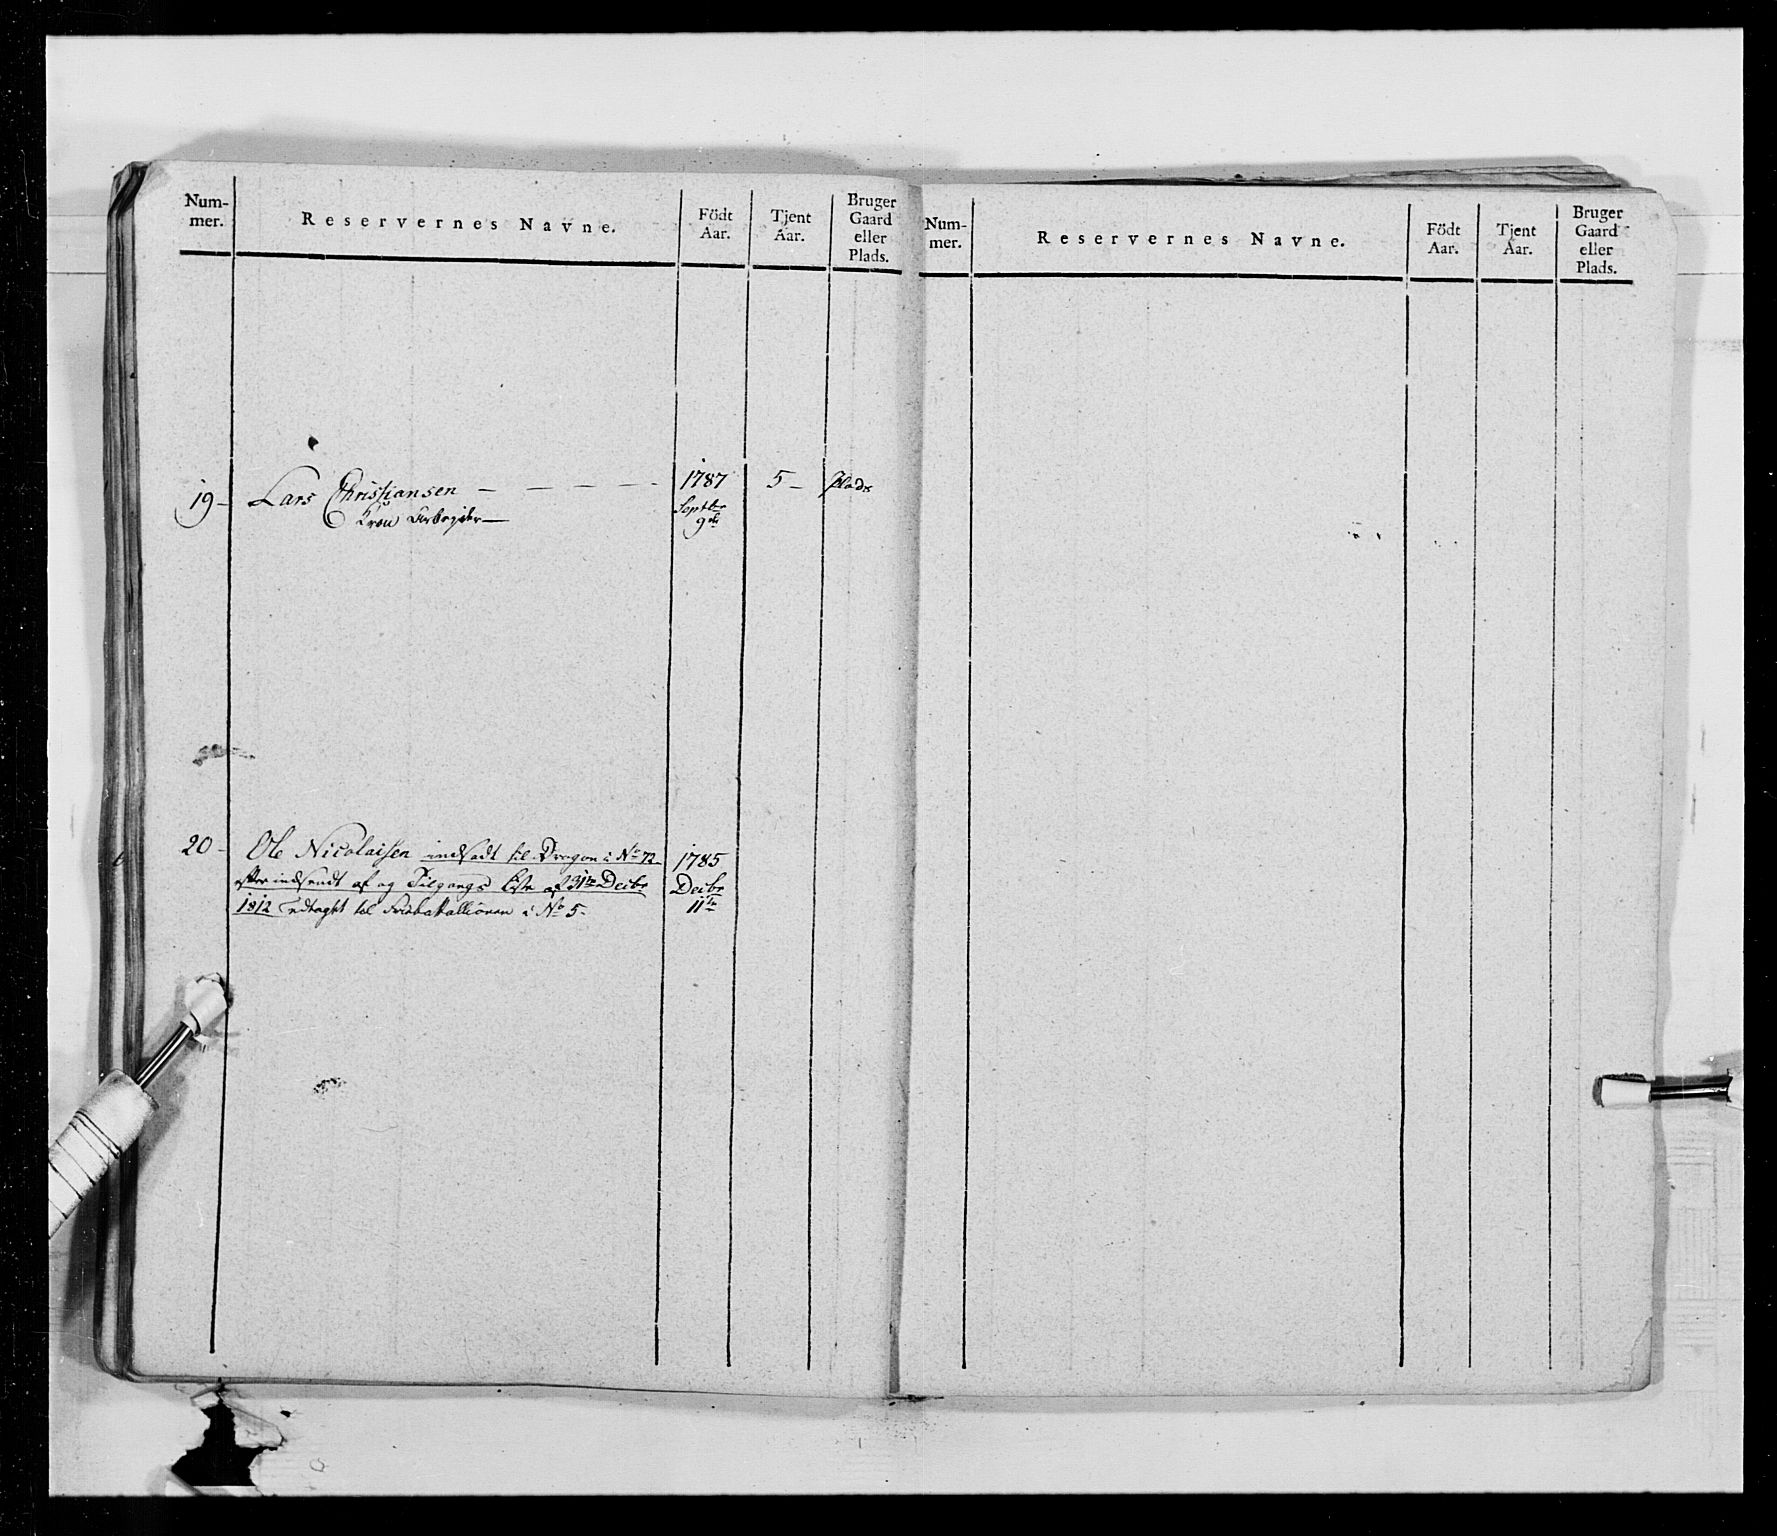 Num-
mer.
Reservernes Navne.
Födt
Aar.
Tjent
Aar.
Bruger
Gaard
eller
Plads.
19 - Lars Christiansen - - - - - 1787 5 - Plads
Septbr
9de
20 - Ole Nicolaisen indsadt til Dragon i No 72 1785
efter indsendt af og Tilgangs Liste af 31te Decbr Decbr
1812 udtagt til Feldbataillionen i No 5 - 11te
Num-
mer.
Reservernes Navne.
Födt
Aar.
Tjent
Aar.
Bruger
Gaard
eller
Plads.